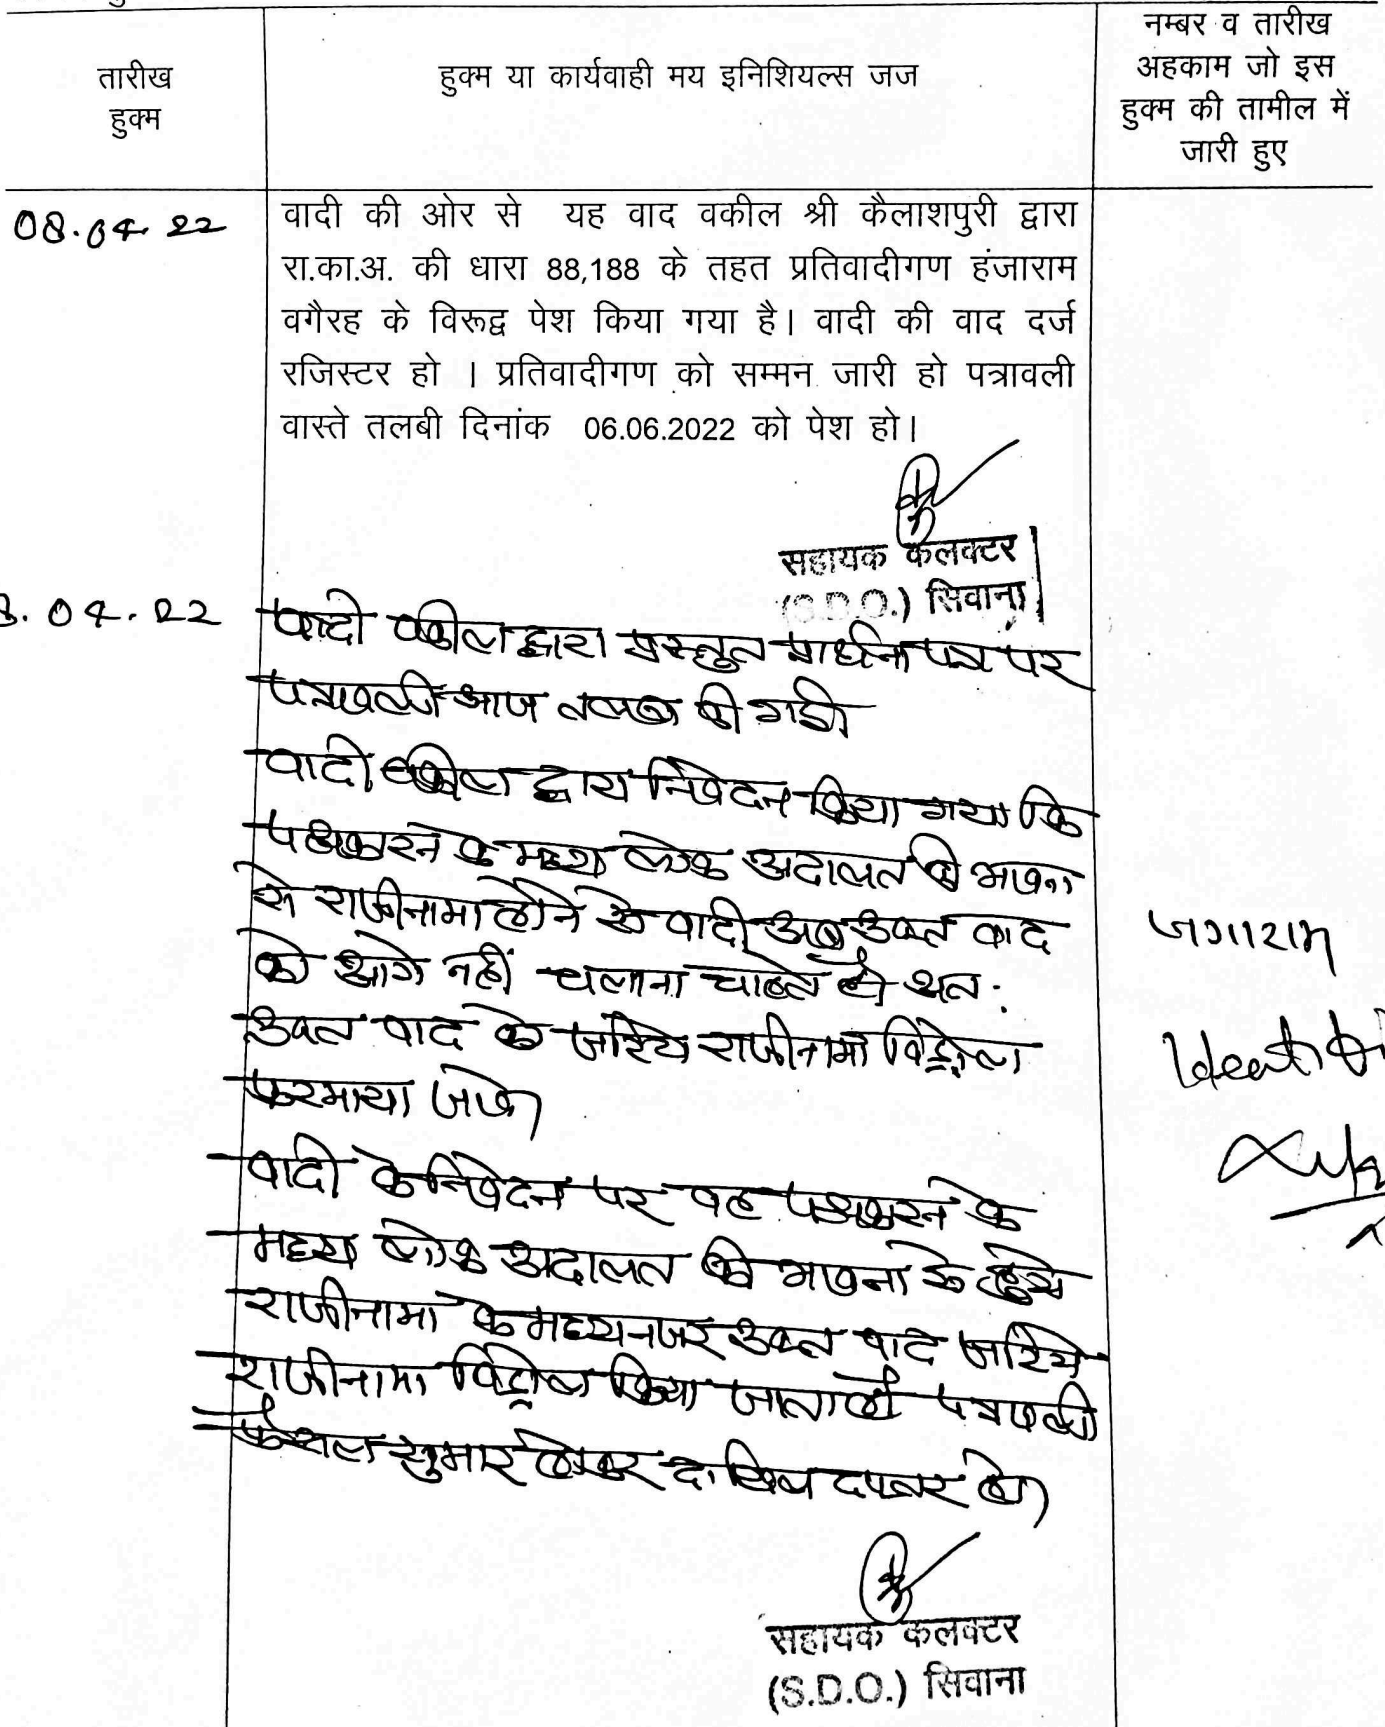 तारीख
हुक्म
हुक्म या कार्यवाही मय इनिशियल्स जज
नम्बर व तारीख
अहकाम जो इस
हुक्म की तामील में
जारी हुए
08.04.22
वादी की ओर से यह वाद वकील श्री कैलाशपुरी द्वारा
रा.का.अ. की धारा 88,188 के तहत प्रतिवादीगण हंजाराम
वगैरह के विरूद्व पेश किया गया है। वादी की वाद दर्ज
रजिस्टर हो । प्रतिवादीगण को सम्मन जारी हो पत्रावली
वास्ते तलबी दिनांक 06.06.2022 को पेश हो।
सहायक कलक्टर
(S.D.O.) सिवाना
.04.22
वादी वकील द्वारा प्रस्तुत प्रार्थना पत्र पर
पत्रावली आज तलब की गई।
वादी वकील द्वारा निवेदन किया गया कि
पक्षकारान के मध्य लोक अदालत की भावना
से राजीनामा होने से वादी अब उक्त वाद
को आगे नहीं चलाना चाहते है अत:
उक्त वाद को जरिये राजीनामा विड्रोल
फरमाया जावे।
वादी के निवेदन पर व पक्षकारान के
मध्य लोक अदालत की भावना से हुये
राजीनामा के मध्यनजर उक्त वाद जरिये
राजीनामा विड्रोल किया जाता है। पत्रावली
फैसल सुमार होकर दाखिल दफ्तर हो।
जगाराम
सहायक कलक्टर
(S.D.O.) सिवाना